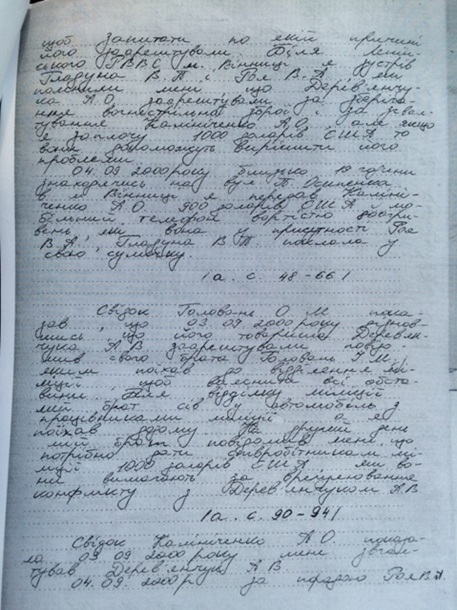 щоб запитати по якій причині
його заарештували. Біля Ленін-
ського РВВС м. Вінниці я зустрів
Гладуна В.П. і Гоя В.А., які
пояснили мені що Дерев'янчу-
ка А.О. заарештували за зберіга-
ння вогнестрільної зброї і за згвал-
тування Калініченко А.О., але якщо
я заплачу 1000 доларів США то
вони допоможуть вирішити його
проблеми.
04.09.2000 року близько 19 години
знаходячись на вул. П. Осипенка
в м. Вінниці я передав Калині-
ченко А.О. 900 доларів США і мо-
більний телефон вартістю
вень, які вона у присутності Гоя
В.А., Гладуна В.П. поклала у
свою сумочку.
/а. с. 48-66/
Свідок Головань О.М. пока-
зав, що 03.09.2000 року
що його товариша Дерев'ян-
чука А.В. заарештували
свого брата Голованя І.М.,
яким поїхав до відділення мі-
ліції, щоб вияснити всі обста-
вини. Біля відділку міліції
мій брат сів у автомобіль з
працівниками міліції, а я
поїхав додому. На другий день
мій брат повідомив мені, що
потрібно дати співробітникам мі-
ліції 1000 доларів США, які во-
ни вимагають за врегулювання
конфлікту з Дерев'янчуком А.В.
/а. с. 90-94/
Свідок Калініченко А.О. показа-
ла, 03.09.2000 року мене згвал-
тував Дерев'янчук А.В.
04.09.2000 р за порадою Гоя В.А.